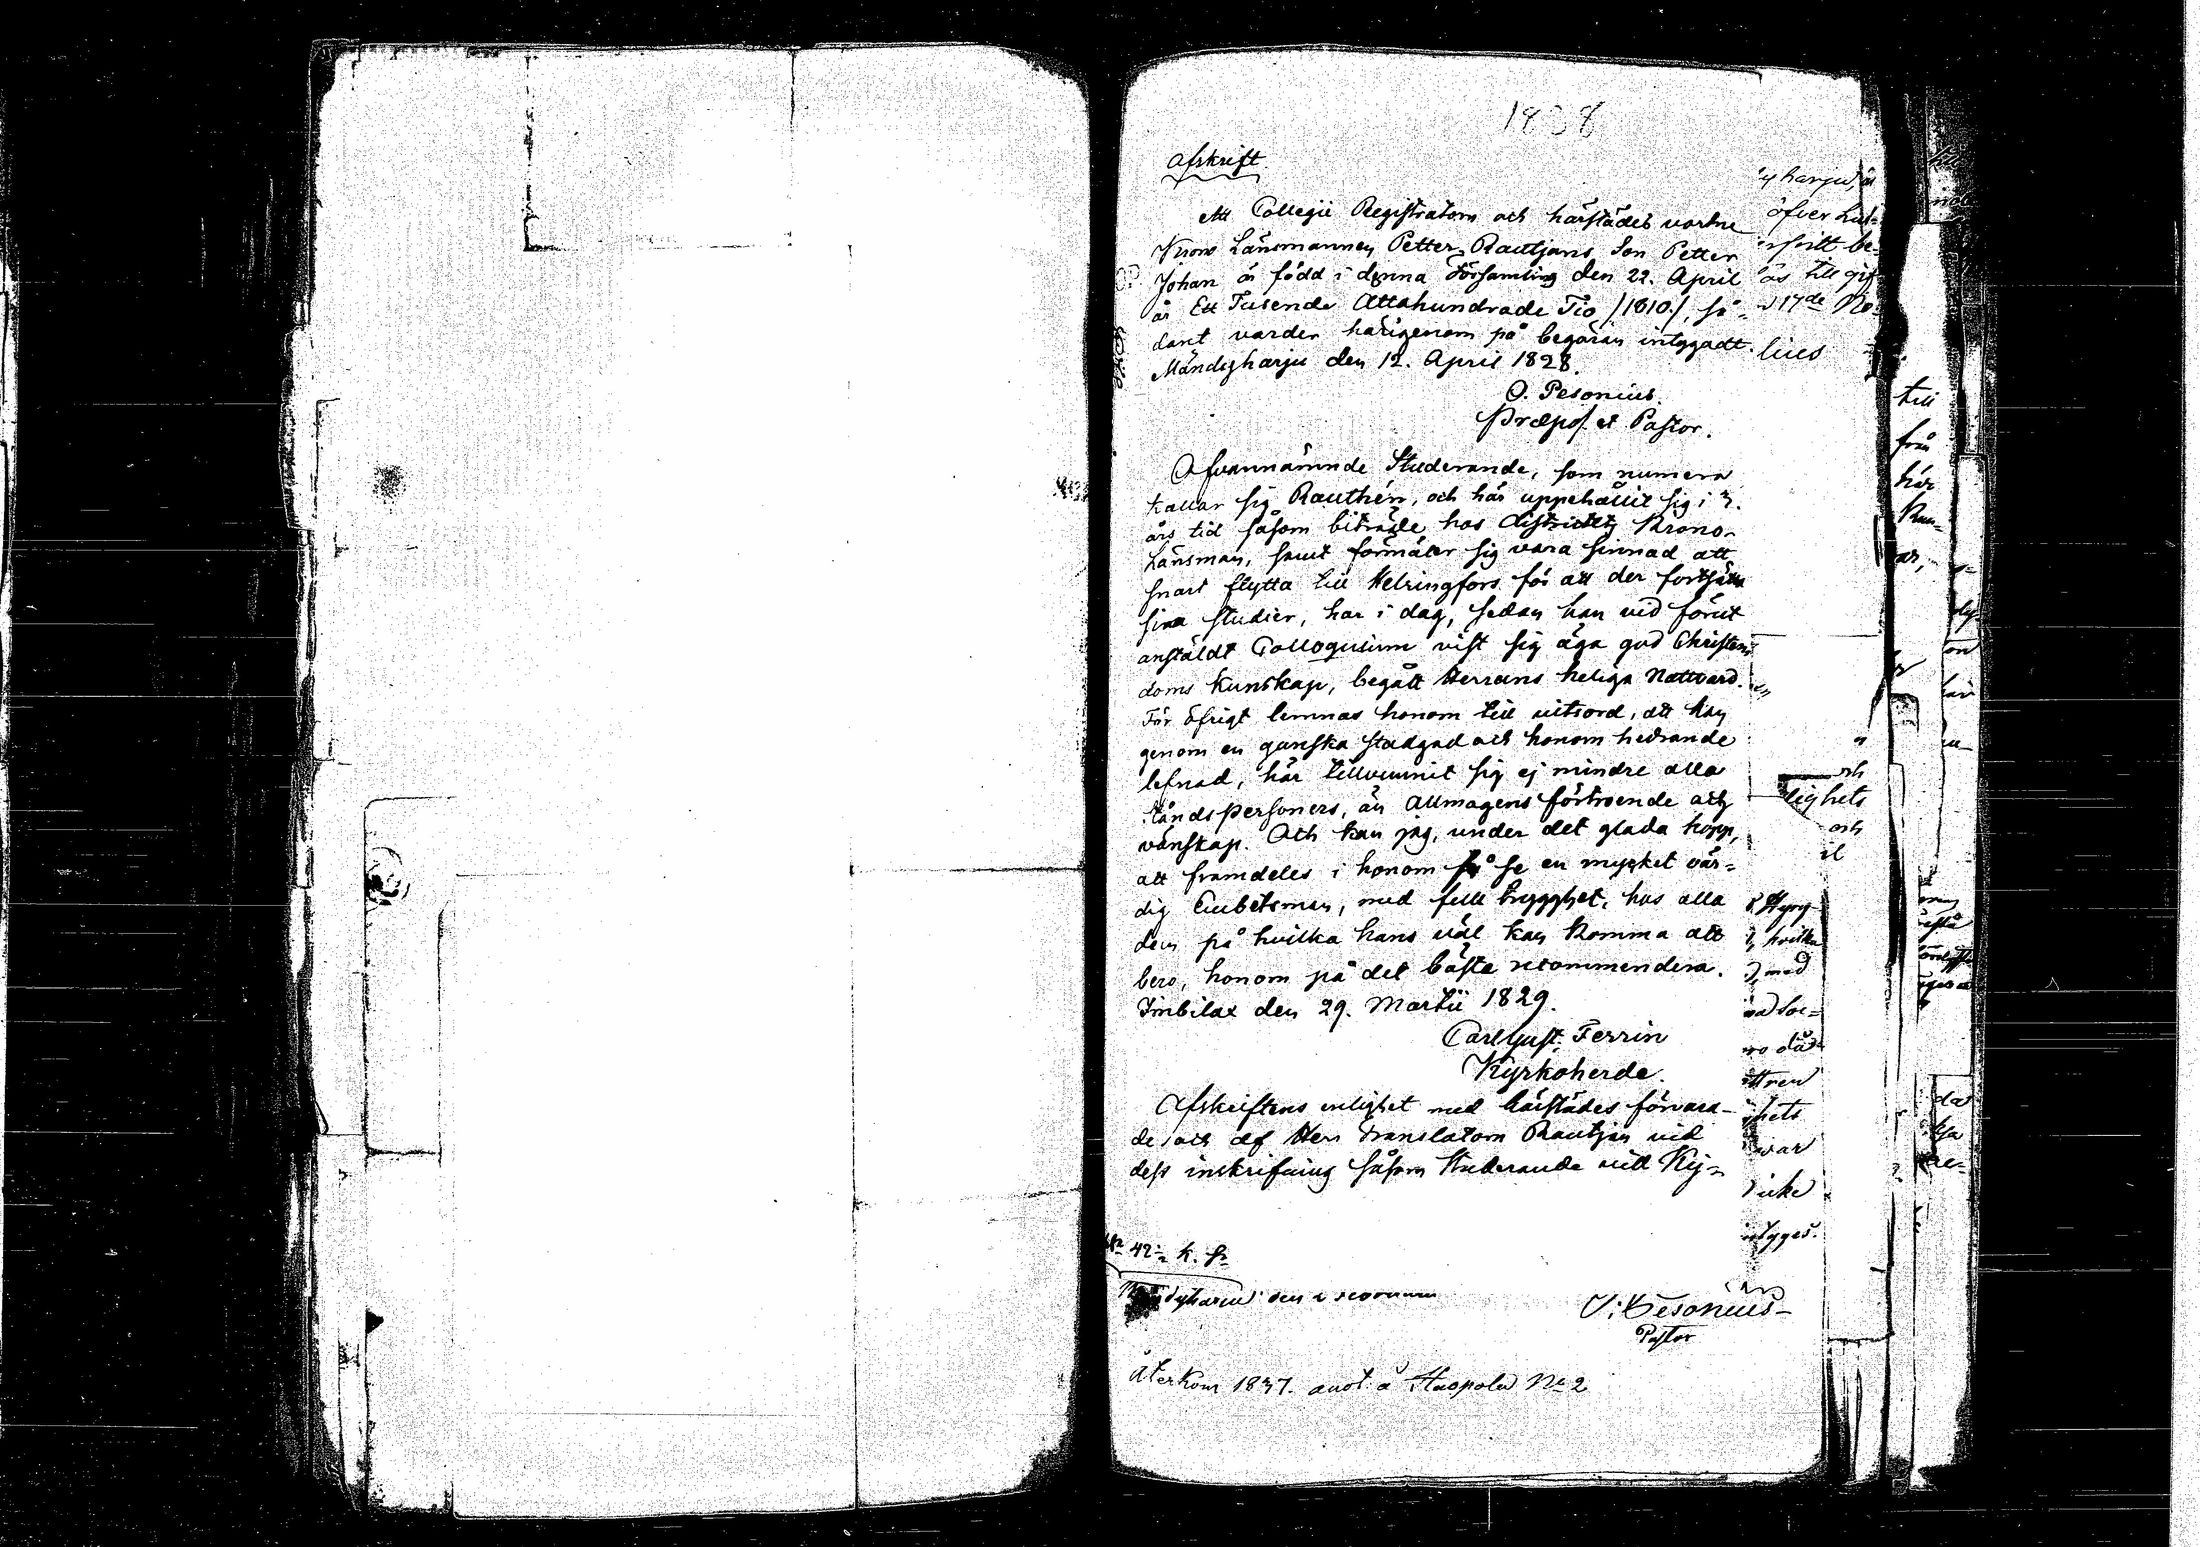 1838
Afskrift
Att Collegii Registratorn och härstädes varne
Krono Länsmannen Petter Rautjans Son Petter
Johan är född i denna Församling den 22. April
år Ett Tusende Attahundrade Tio /1810./, så-
dant varder härigenom på begäran intygadt.
Mändyharju den 12. April 1828.
O. Pesonius.
Præpos. et Pastor.
Ofvannämnde Studerande, som numera
kallar sig Rauthén, och här uppehållit sig i
års tid såsom biträde hos districtets Krono-
Länsman, samt förmäler sig vara sinnad att
snart flytta till Helsingfors för att der fortsätta
sina studier, har i dag, sedan han vid förut
anstäldt Colloquium vist sig äga god Christen-
doms kunskap, begått Herrans heliga Nattvard.
För öfrigt lemnas honom till vitsord, att han
genom en ganska stadgad och honom hedrande
lefnad, här tillvunnit sig ej mindre alla
Ståndspersoners, än Allmogens förtroende och
vänskap. Och kan jag, under det glada hopp,
att framdeles i honom få se en mycket vär-
dig Embetsman, med full trygghet, hos alla
dem på hvilka hans väl kan komma att
bero, honom på det bästa recommendera.
Imbilax den 29. Martii 1829.
Carl Gust. Ferrin
Kyrkoherde.
Afskriftens enlighet med härstädes förvara-
de och af Herr Translatorn Rautjan vid
dess inskrifning såsom Studerande vid Ky-
42 k. s
den
Pesonius
Pastor
Återkom 1837. anot. å Haapala No 2
öfver
till gif
17de No-
lius
och
lighets
och
hvilka
med
hets
var
icke
intyges.
till
från
här